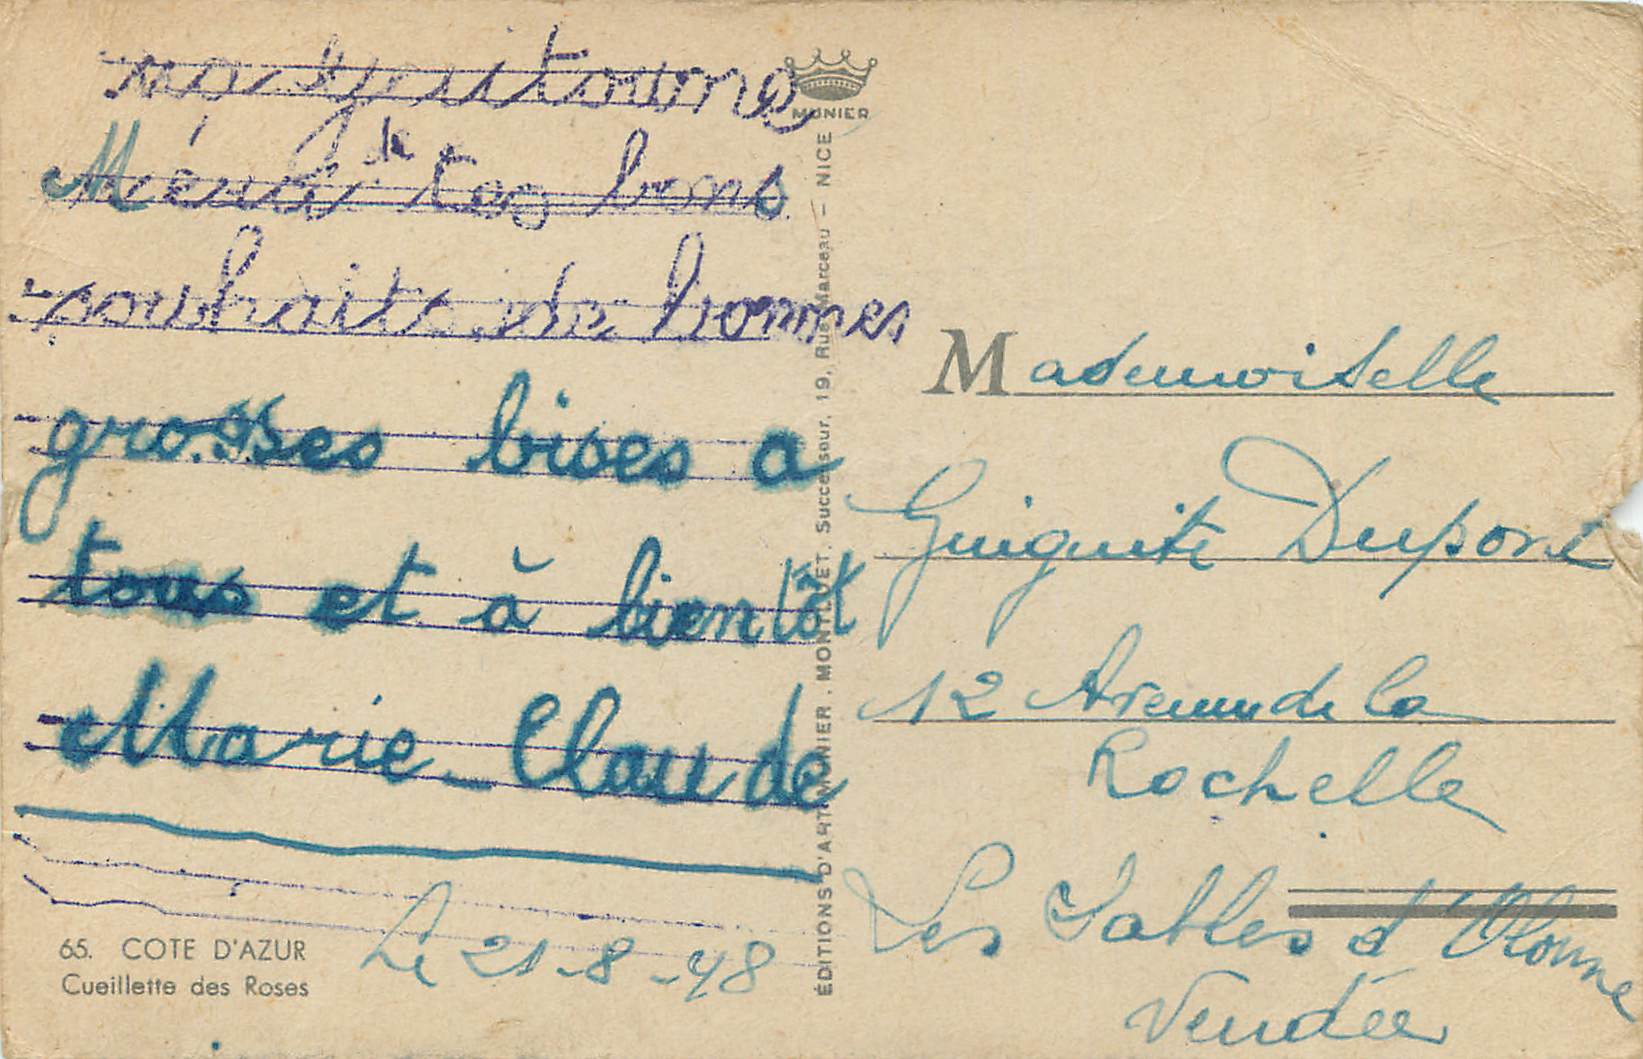 Méri de tes bons
souhaits de bonnes
grosses bises a
tous et à bientôt
Marie-Claude
Le 21-8-48
65. COTE D'AZUR
Cueillette des Roses
MUNIER
ÉDITIONS D'ART MUNIER. MONTLUET, Successeur, 19, Rue Marceau - NICE
Mademoiselle
Guiguite Dupont
12 Avenue de la
Rochelle
Les Sables d'Olonne
Vendée